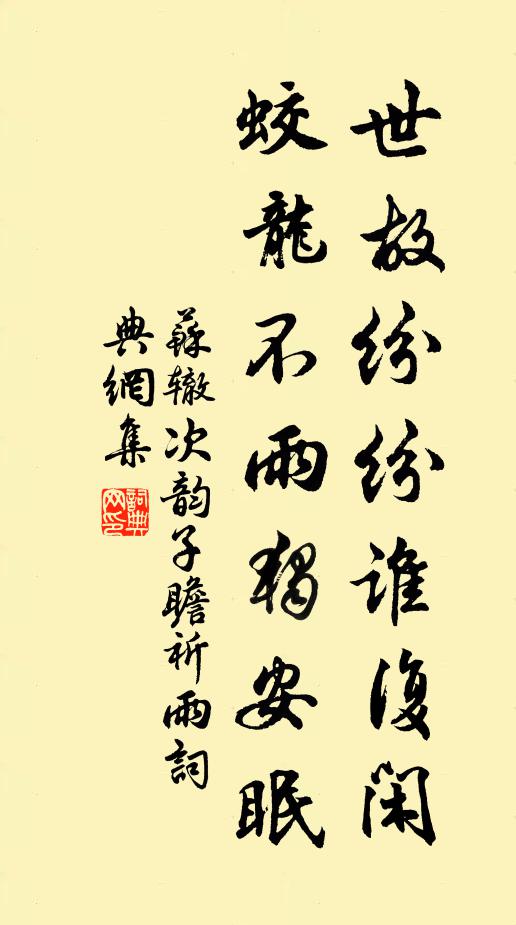 世故紛紛誰復閑
蛟龍不雨獨安眠
蘇轍次韵子瞻祈雨詞
典網集
詞典网印